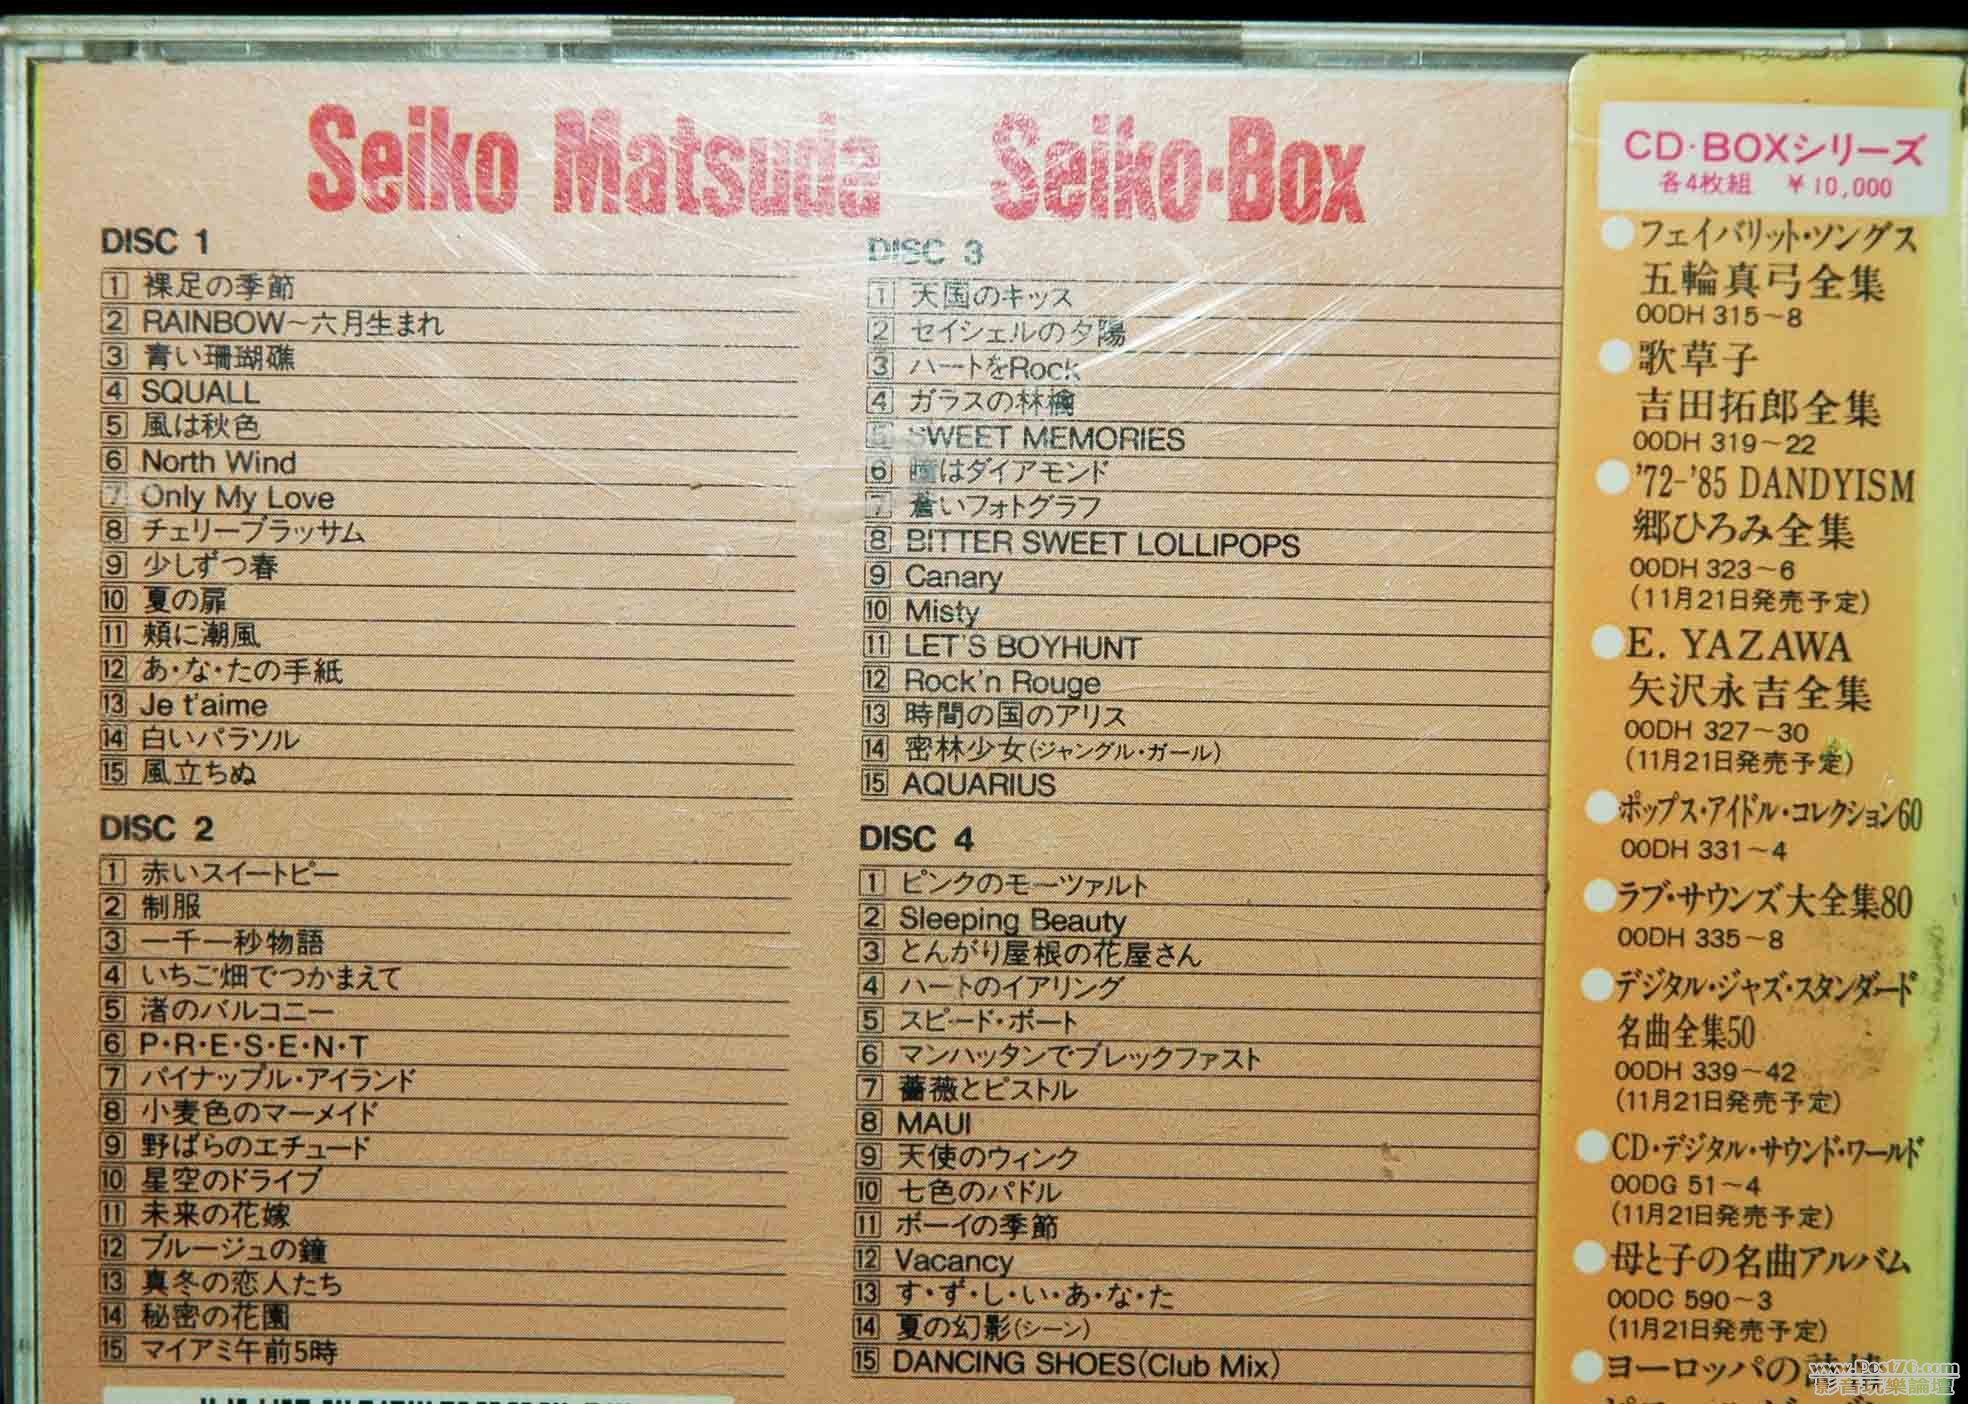 Seiko Matsuda Seiko・Box
DISC 1
1 裸足の季節
2 RAINBOW〜六月生まれ
3 青い珊瑚礁
4 SQUALL
5 風は秋色
6 North Wind
7 Only My Love
8 チェリーブラッサム
9 少しずつ春
10 夏の扉
11 頬に潮風
12 あ・な・たの手紙
13 Je t'aime
14 白いパラソル
15 風立ちぬ
DISC 2
1 赤いスイートピー
2 制服
3 一千一秒物語
4 いちご畑でつかまえて
5 渚のバルコニー
6 P・R・E・S・E・N・T
7 パイナップル・アイランド
8 小麦色のマーメイド
9 野ばらのエチュード
10 星空のドライブ
11 未来の花嫁
12 ブルージュの鐘
13 真冬の恋人たち
14 秘密の花園
15 マイアミ午前5時
DISC 3
1 天国のキッス
2 セイシェルの夕陽
3 ハートをRock
4 ガラスの林檎
5 SWEET MEMORIES
6 瞳はダイアモンド
7 蒼いフォトグラフ
8 BITTER SWEET LOLLIPOPS
9 Canary
10 Misty
11 LET'S BOYHUNT
12 Rock'n Rouge
13 時間の国のアリス
14 密林少女(ジャングル・ガール)
15 AQUARIUS
DISC 4
1 ピンクのモーツァルト
2 Sleeping Beauty
3 とんがり屋根の花屋さん
4 ハートのイアリング
5 スピード・ボート
6 マンハッタンでブレックファスト
7 薔薇とピストル
8 MAUI
9 天使のウィンク
10 七色のパドル
11 ボーイの季節
12 Vacancy
13 す・ず・し・い・あ・な・た
14 夏の幻影(シーン)
15 DANCING SHOES(Club Mix)
CD・BOXシリーズ
各4枚組 ￥10,000
●フェイバリット・ソングス
五輪真弓全集
00DH 315〜8
●歌草子
吉田拓郎全集
00DH 319〜22
●'72-'85 DANDYISM
郷ひろみ全集
00DH 323〜6
(11月21日発売予定)
●E. YAZAWA
矢沢永吉全集
00DH 327〜30
(11月21日発売予定)
●ポップス・アイドル・コレクション60
00DH 331〜4
●ラブ・サウンズ大全集80
00DH 335〜8
●デジタル・ジャズ・スタンダード
名曲全集50
00DH 339〜42
(11月21日発売予定)
●CD・デジタル・サウンド・ワールド
00DG 51〜4
(11月21日発売予定)
●母と子の名曲アルバム
00DC 590〜3
(11月21日発売予定)
●ヨーロッパの
www.Post76.com
影音玩樂論壇